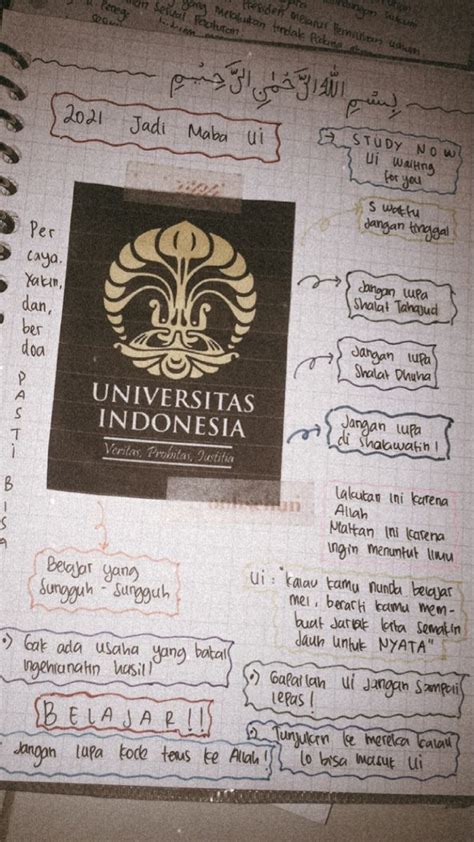 بِسْمِ اللهِ الرَّحْمٰنِ الرَّحِيْمِ
2021 Jadi Maba UI
STUDY NOW
UI Waiting
for you
5 waktu
Jangan tinggal
Per
caya.
Yakin,
dan,
ber
doa
P
A
S
T
I
B
I
S
A
UNIVERSITAS
INDONESIA
Veritas, Probitas, Iustitia
Jangan lupa
Shalat Tahajud
Jangan lupa
Shalat Dhuha
Jangan lupa
di shalawatin!
Lakukan ini karena
Allah
Maksan ini karena
ingin menuntut ilmu
Belajar yang
Sungguh - Sungguh
UI : "kalau kamu nunda belajar
mei, berarti kamu mem-
buat jarak kita semakin
jauh untuk NYATA"
•) Gak ada usaha yang bakal
ngehianatin hasil!
•) Gapailah UI jangan sampai
lepas!
BELAJAR!!
Jangan lupa kode terus ke Allah!
•) Tunjukan ke mereka kalau
lo bisa masuk UI